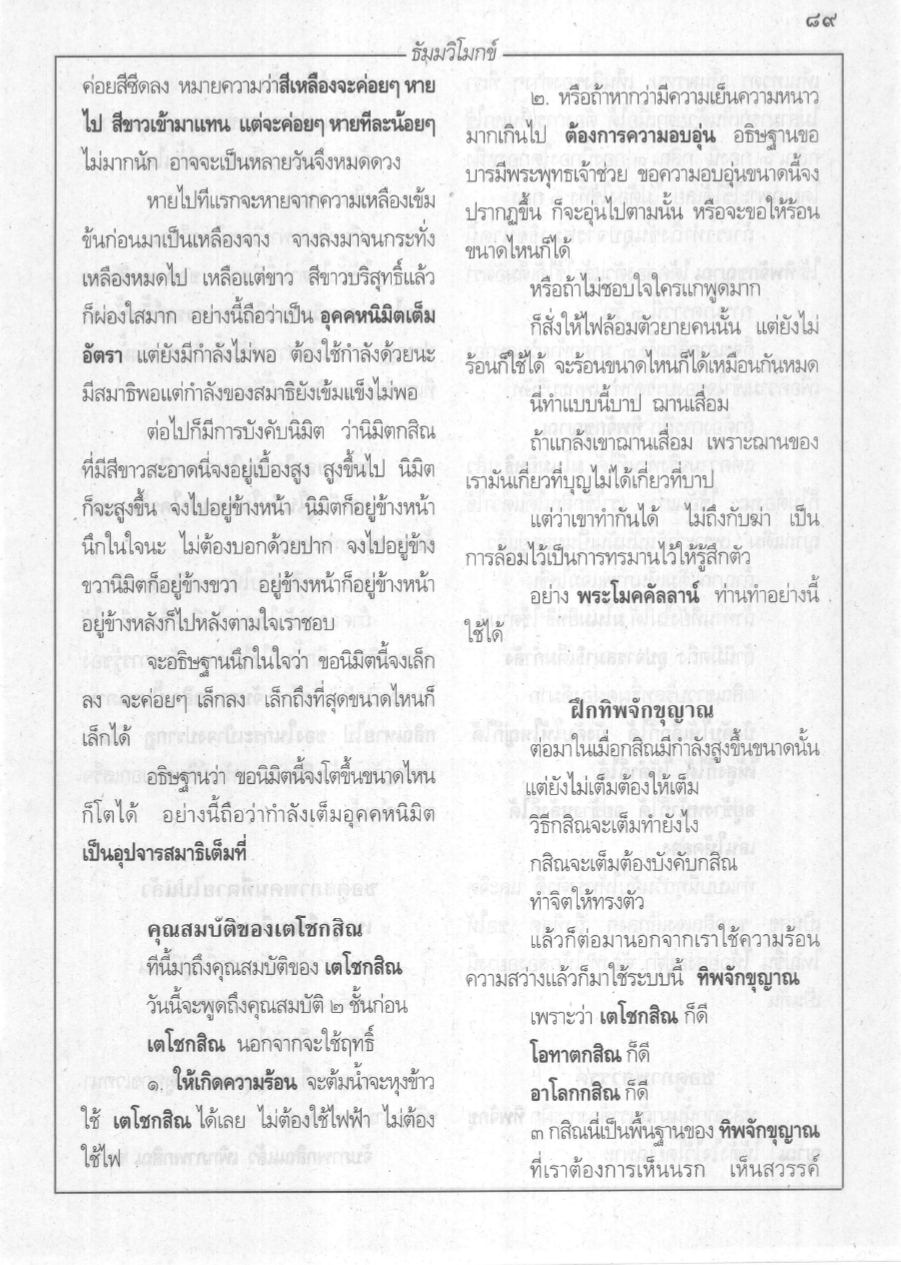 ๘๙
ธัมมวิโมกข์
ค่อยสีซีดลง หมายความว่าสีเหลืองจะค่อยๆ หาย
ไป สีขาวเข้ามาแทน แต่จะค่อยๆ หายทีละน้อยๆ
ไม่มากนัก อาจจะเป็นหลายวันจึงหมดดวง
หายไปทีแรกจะหายจากความเหลืองเข้ม
ข้นก่อนมาเป็นเหลืองจาง จางลงมาจนกระทั่ง
เหลืองหมดไป เหลือแต่ขาว สีขาวบริสุทธิ์แล้ว
ก็ผ่องใสมาก อย่างนี้ถือว่าเป็น อุคคหนิมิตเต็ม
อัตรา แต่ยังมีกำลังไม่พอ ต้องใช้กำลังด้วยนะ
มีสมาธิพอแต่กำลังของสมาธิยังเข้มแข็งไม่พอ
ต่อไปก็มีการบังคับนิมิต ว่านิมิตกสิณ
ที่มีสีขาวสะอาดนี่จงอยู่เบื้องสูง สูงขึ้นไป นิมิต
ก็จะสูงขึ้น จงไปอยู่ข้างหน้า นิมิตก็อยู่ข้างหน้า
นึกในใจนะ ไม่ต้องบอกด้วยปาก จงไปอยู่ข้าง
ขวานิมิตก็อยู่ข้างขวา อยู่ข้างหน้าก็อยู่ข้างหน้า
อยู่ข้างหลังก็ไปหลังตามใจเราชอบ
จะอธิษฐานนึกในใจว่า ขอนิมิตนี้จงเล็ก
ลง จะค่อยๆ เล็กลง เล็กถึงที่สุดขนาดไหนก็
เล็กได้
อธิษฐานว่า ขอนิมิตนี้จงโตขึ้นขนาดไหน
ก็โตได้ อย่างนี้ถือว่ากำลังเต็มอุคคหนิมิต
เป็นอุปจารสมาธิเต็มที่
คุณสมบัติของเตโชกสิณ
ทีนี้มาถึงคุณสมบัติของ เตโชกสิณ
วันนี้จะพูดถึงคุณสมบัติ ๒ ชั้นก่อน
เตโชกสิณ นอกจากจะใช้ฤทธิ์
๑. ให้เกิดความร้อน จะต้มน้ำจะหุงข้าว
ใช้ เตโชกสิณ ได้เลย ไม่ต้องใช้ไฟฟ้า ไม่ต้อง
ใช้ไฟ
๒. หรือถ้าหากว่ามีความเย็นความหนาว
มากเกินไป ต้องการความอบอุ่น อธิษฐานขอ
บารมีพระพุทธเจ้าช่วย ขอความอบอุ่นขนาดนี้จง
ปรากฏขึ้น ก็จะอุ่นไปตามนั้น หรือจะขอให้ร้อน
ขนาดไหนก็ได้
หรือถ้าไม่ชอบใจใครแกพูดมาก
ก็สั่งให้ไฟล้อมตัวยายคนนั้น แต่ยังไม่
ร้อนก็ใช้ได้ จะร้อนขนาดไหนก็ได้เหมือนกันหมด
นี่ทำแบบนี้บาป ฌานเสื่อม
ถ้าแกล้งเขาฌานเสื่อม เพราะฌานของ
เรามันเกี่ยวที่บุญไม่ได้เกี่ยวที่บาป
แต่ว่าเขาทำกันได้ ไม่ถึงกับฆ่า เป็น
การล้อมไว้เป็นการทรมานไว้ให้รู้สึกตัว
อย่าง พระโมคคัลลาน์ ท่านทำอย่างนี้
ใช้ได้
ฝึกทิพจักขุญาณ
ต่อมาในเมื่อกสิณมีกำลังสูงขึ้นขนาดนั้น
แต่ยังไม่เต็มต้องให้เต็ม
วิธีกสิณจะเต็มทำยังไง
กสิณจะเต็มต้องบังคับกสิณ
ทำจิตให้ทรงตัว
แล้วก็ต่อมานอกจากเราใช้ความร้อน
ความสว่างแล้วก็มาใช้ระบบนี้ ทิพจักขุญาณ
เพราะว่า เตโชกสิณ ก็ดี
โอทาตกสิณ ก็ดี
อาโลกกสิณ ก็ดี
๓ กสิณนี่เป็นพื้นฐานของ ทิพจักขุญาณ
ที่เราต้องการเห็นนรก เห็นสวรรค์